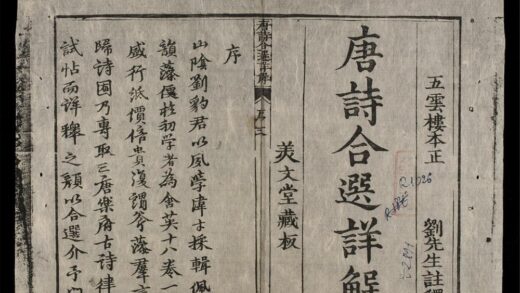 五雲樓本正
劉先生註釋
唐詩合選詳解
美文堂藏板
唐詩合選詳解
序
山陰劉豹君以風學偉士採輯佩
韻藻優桂初學者為會英十八卷一
盛行派價倍貴復謂
歸詩國乃專取三唐樂府古詩律
試帖而詳釋之顏以合選介予